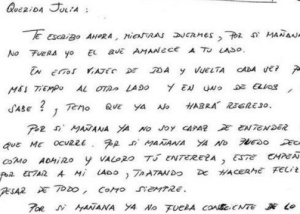 QUERIDA JULIA:
TE ESCRIBO AHORA, MIENTRAS DUERMES, POR SI MAÑANA
NO FUERA YO EL QUE AMANECE A TU LADO.
EN ESTOS VIAJES DE IDA Y VUELTA CADA VEZ P
MÁS TIEMPO AL OTRO LADO Y EN UNO DE ELLOS,
SABE?, TEMO QUE YA NO HABRÁ REGRESO.
POR SI MAÑANA YA NO SOY CAPAZ DE ENTENDER
QUE ME OCURRE. POR SI MAÑANA YA NO PUEDO DECI
COMO ADMIRO Y VALORO TU ENTEREZA, ESTE EMPEÑ
POR ESTAR A MI LADO, TRATANDO DE HACERME FELIZ
PESAR DE TODO, COMO SIEMPRE.
POR SI MAÑANA YA NO FUERA CONSCIENTE DE LO